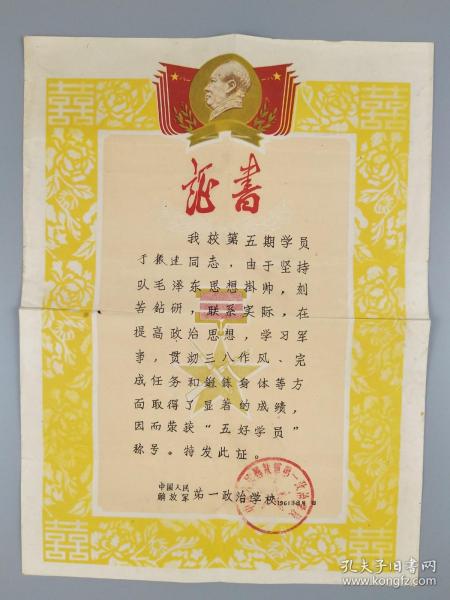 证书
我校第五期学员
于振建同志，由于坚持
队毛泽东思想掛帅，刻
苦钻研，联系实际，在
提高政治思想，学习军
事，贯彻三八作风、完
成任务和鍛鍊身体等方
面取得了显著的成绩，
因而荣获“五好学员”
称号。特发此证。
中国人民
解放军 第一政治学校
1961
孔夫子旧书网
www.kongfz.com